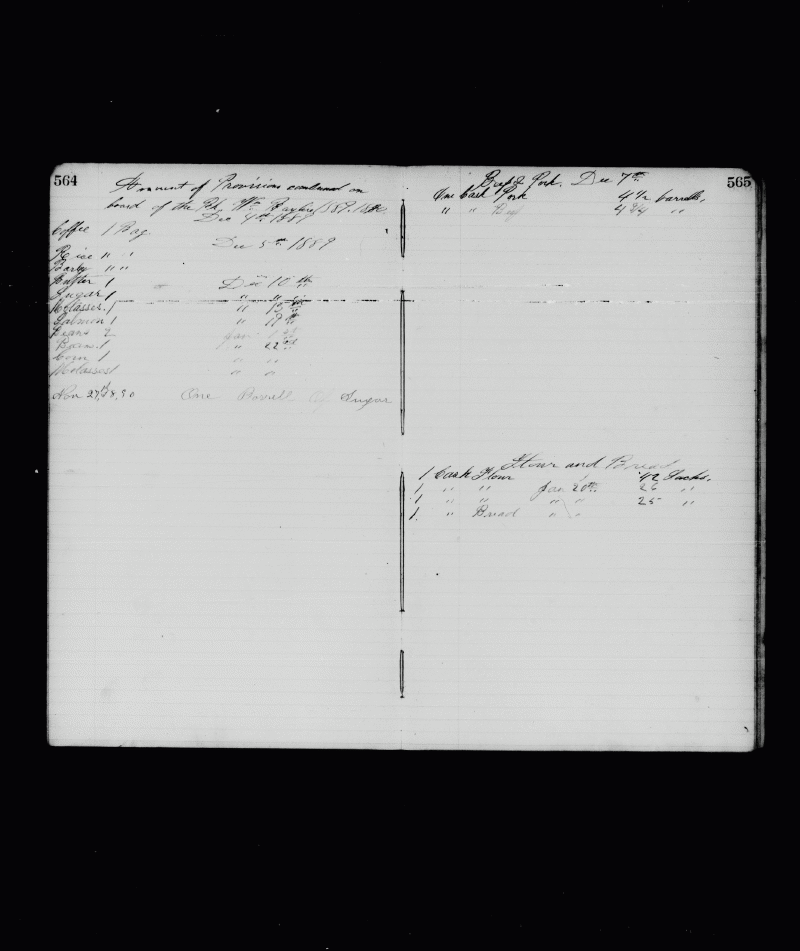 564
Amount of Provisions consumed on
board of the Bk. Wm Baylies 1889. 1890.
Dec 4th 1889
Coffee 1 Bag
Dec 5th 1889
Rice " "
Barley " "
Butter 1 Dec 10th
Sugar 1 " "
Molasses. 1 " 15th
Salmon 1 "
Beans 2 Jan
1 " 22nd
Corn 1 " "
Molasses 1 " "
Nov 27th, 90 One Barrell Of Sugar
565
Beef & Pork. Dec 7th
One Cask Pork 4 1/2 barrells,
" " Beef 4 3/4 "
Flour and Bread
1 Cask Flour 42 Sacks.
1 " " Jan 20th. 26 "
1 " " " " 25 "
1. " Bread " "